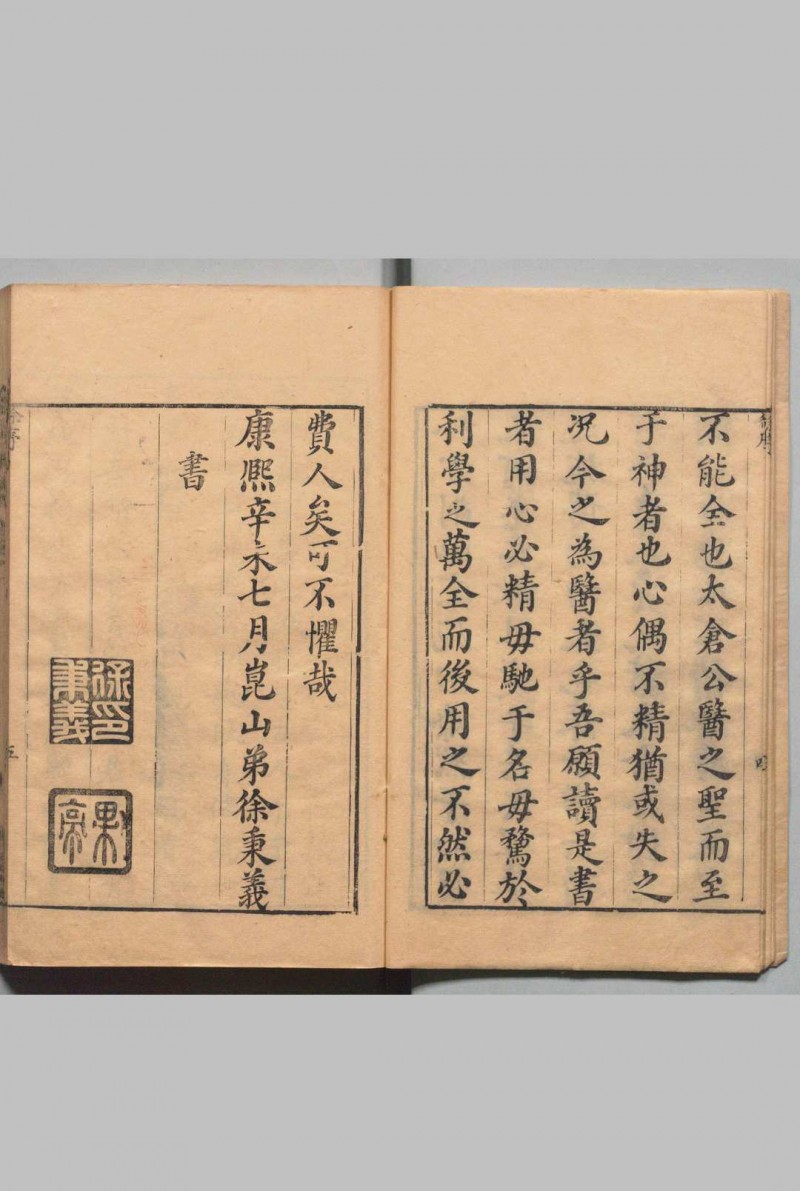 不能全也太倉公醫之聖而至
于神者也心偶不精猶或失之
况今之為醫者乎吾願讀是書
者用心必精毋馳于名毋騖於
利學之萬全而後用之不然必
費人矣可不懼哉
康熙辛未七月崑山弟徐秉義
書
徐印
秉義
果亭
徐序
五